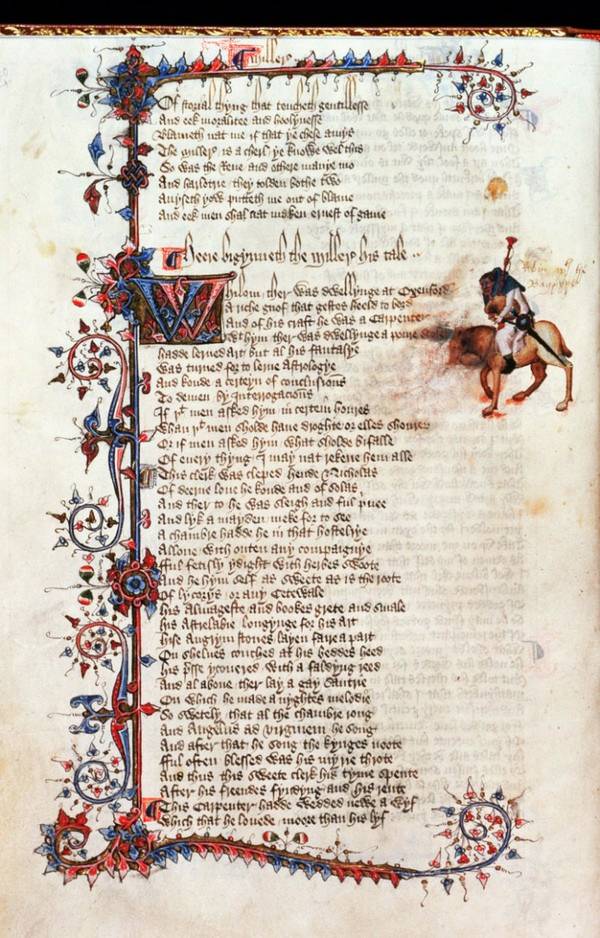 Miller
Of storial thyng that toucheth gentillesse
And eek moralitee and hoolynesse
Blameth nat me if that ye chese amys
The Millere is a cherl ye knowe wel this
So was the Reve and othere manye mo
And harlotrie they tolden bothe two
Avyseth yow putteth me out of blame
And eek men shal nat maken ernest of game
Heere bigynneth the Millere his tale
Whilom ther was dwellynge at Oxenford
A riche gnof that gestes heeld to bord
And of his craft he was a Carpenter
With hym ther was dwellynge a poure
hadde lerned art but al his fantasye
Was turned for to lerne Astrologye
And koude a certeyn of conclusions
To demen by Interrogacions
If þt men asked hym in certein houres
Whan þt men sholde haue droghte or elles shoures
Or if men asked hym what sholde bifalle
Of euery thyng I may nat rekene hem alle
This clerk was cleped hende Nicholas
Of deerne loue he koude and of solas
And ther to he was sleigh and ful priuee
And lyk a mayden meke for to see
A chambre hadde he in that hostelrye
Allone with outen any compaignye
fful fetisly ydight with herbes swoote
And he hym self as sweete as is the roote
Of lycorys or any Cetewale
his Almageste and bookes grete and smale
his Astrelabie longynge for his art
hise Augrym stones layen faire a part
On shelues couched at his beddes heed
his presse ycouered with a faldyng reed
And al aboue ther lay a gay Sautrie
On which he made a nyghtes melodie
So swetely that al the chambre rong
And Angelus ad virginem he song
And after that he song the kynges noote
fful often blessed was his myrie throte
And thus this sweete clerk his tyme spente
After his freendes fyndyng and his rente
This Carpenter hadde wedded newe a wyf
Which that he louede moore than his lyf